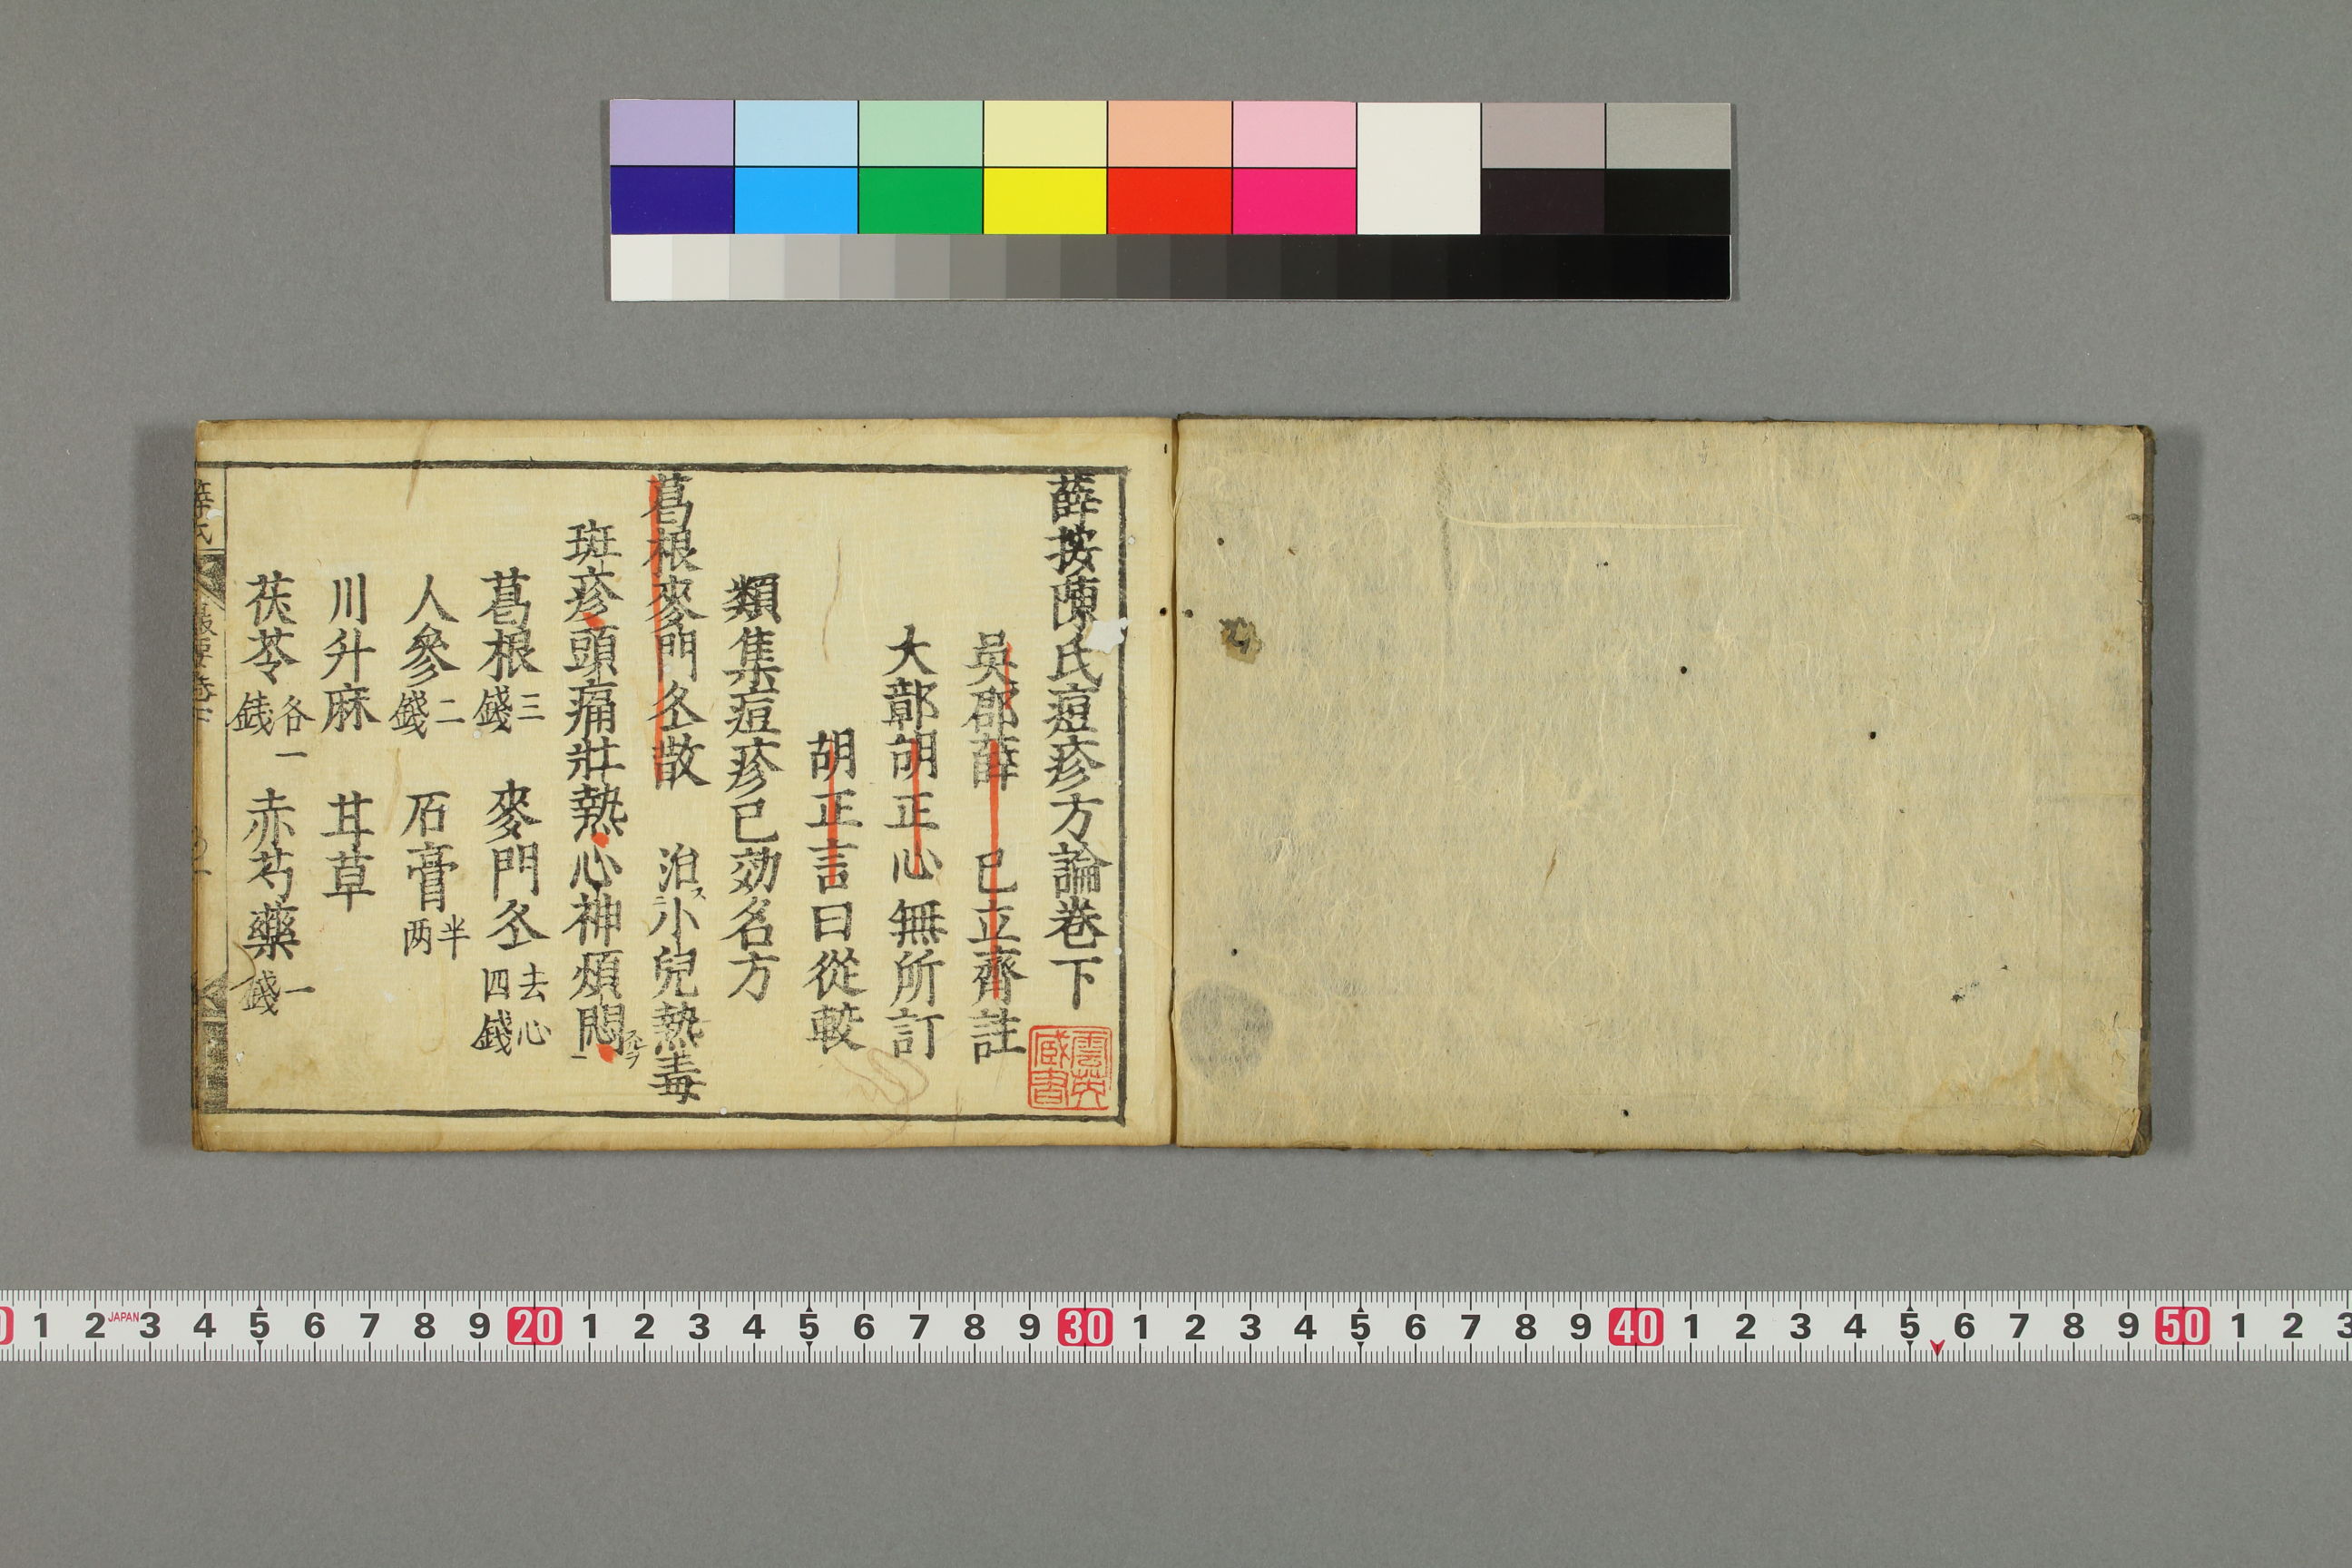 薛按陳氏痘疹方論卷下
吳郡薛 己立齊註
大鄣胡正心無所訂
胡正言曰從較
類集痘疹已効名方
葛根麥門冬散 治小兒熱毒
斑疹頭痛壯熱心神煩悶
葛根三錢 麥門冬去心四錢
人參二錢 石膏半两
川升麻 甘草
茯苓各一錢 赤芍藥一錢
雲英
臧書
薛氏
卷下
1 2 3 4 5 6 7 8 9 20 1 2 3 4 5 6 7 8 9 30 1 2 3 4 5 6 7 8 9 40 1 2 3 4 5 6 7 8 9 50 1 2 3
JAPAN